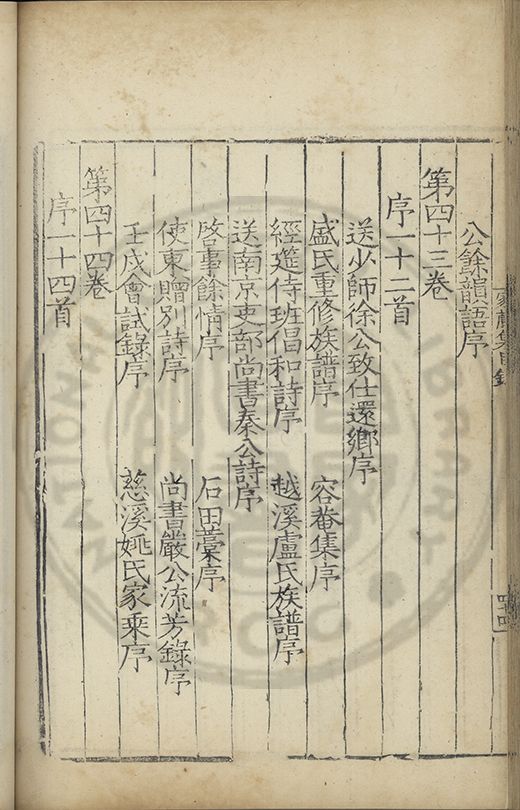 公餘韻語序
第四十三卷
序一十二首
送少師徐公致仕還鄉序
盛氏重修族譜序 容菴集序
經筵侍班倡和詩序 越溪盧氏族譜序
送南京吏部尚書秦公詩序
啓事餘情序 石田藁序
使東贈別詩序 尚書嚴公流芳錄序
壬戌會試錄序 慈溪姚氏家乘序
第四十四卷
序一十四首